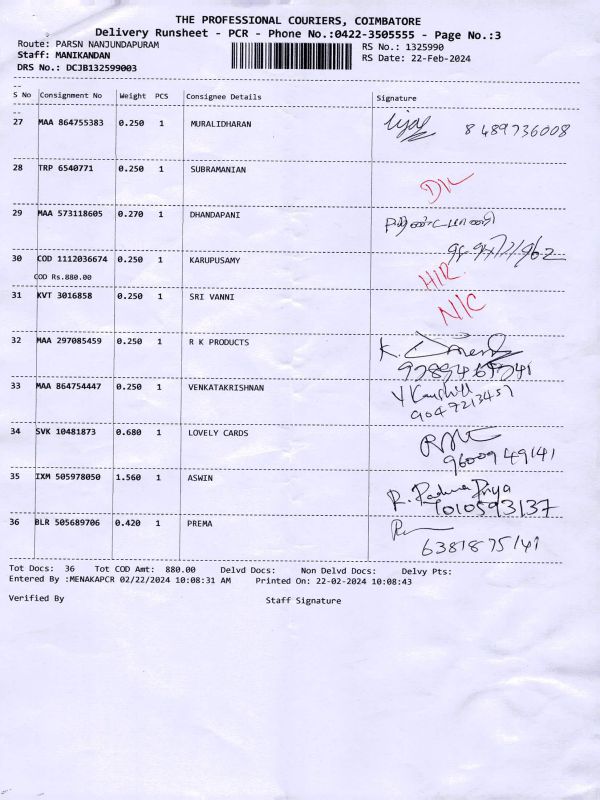 THE PROFESSIONAL COURIERS, COIMBATORE
Delivery Runsheet - PCR - Phone No.:0422-3505555 - Page No.:3
Route: PARSN NANJUNDAPURAM
RS No.: 1325990
Staff: MANIKANDAN
RS Date: 22-Feb-2024
DRS No.: DCJB132599003
S No Consignment No Weight PCS Consignee Details Signature
27 MAA 864755383 0.250 1 MURALIDHARAN 8489736008
28 TRP 6540771 0.250 1 SUBRAMANIAN DL
29 MAA 573118605 0.270 1 DHANDAPANI
30 COD 1112036674 0.250 1 KARUPUSAMY
COD Rs.880.00
31 KVT 3016858 0.250 1 SRI VANNI N/C
32 MAA 297085459 0.250 1 R K PRODUCTS K.
33 MAA 864754447 0.250 1 VENKATAKRISHNAN
9047213457
34 SVK 10481873 0.680 1 LOVELY CARDS
9600949141
35 IXM 505978050 1.560 1 ASWIN R. Padma Priya
7010593137
36 BLR 505689706 0.420 1 PREMA
6381875141
Tot Docs: 36 Tot COD Amt: 880.00 Delvd Docs: Non Delvd Docs: Delvy Pts:
Entered By :MENAKAPCR 02/22/2024 10:08:31 AM Printed On: 22-02-2024 10:08:43
Verified By Staff Signature